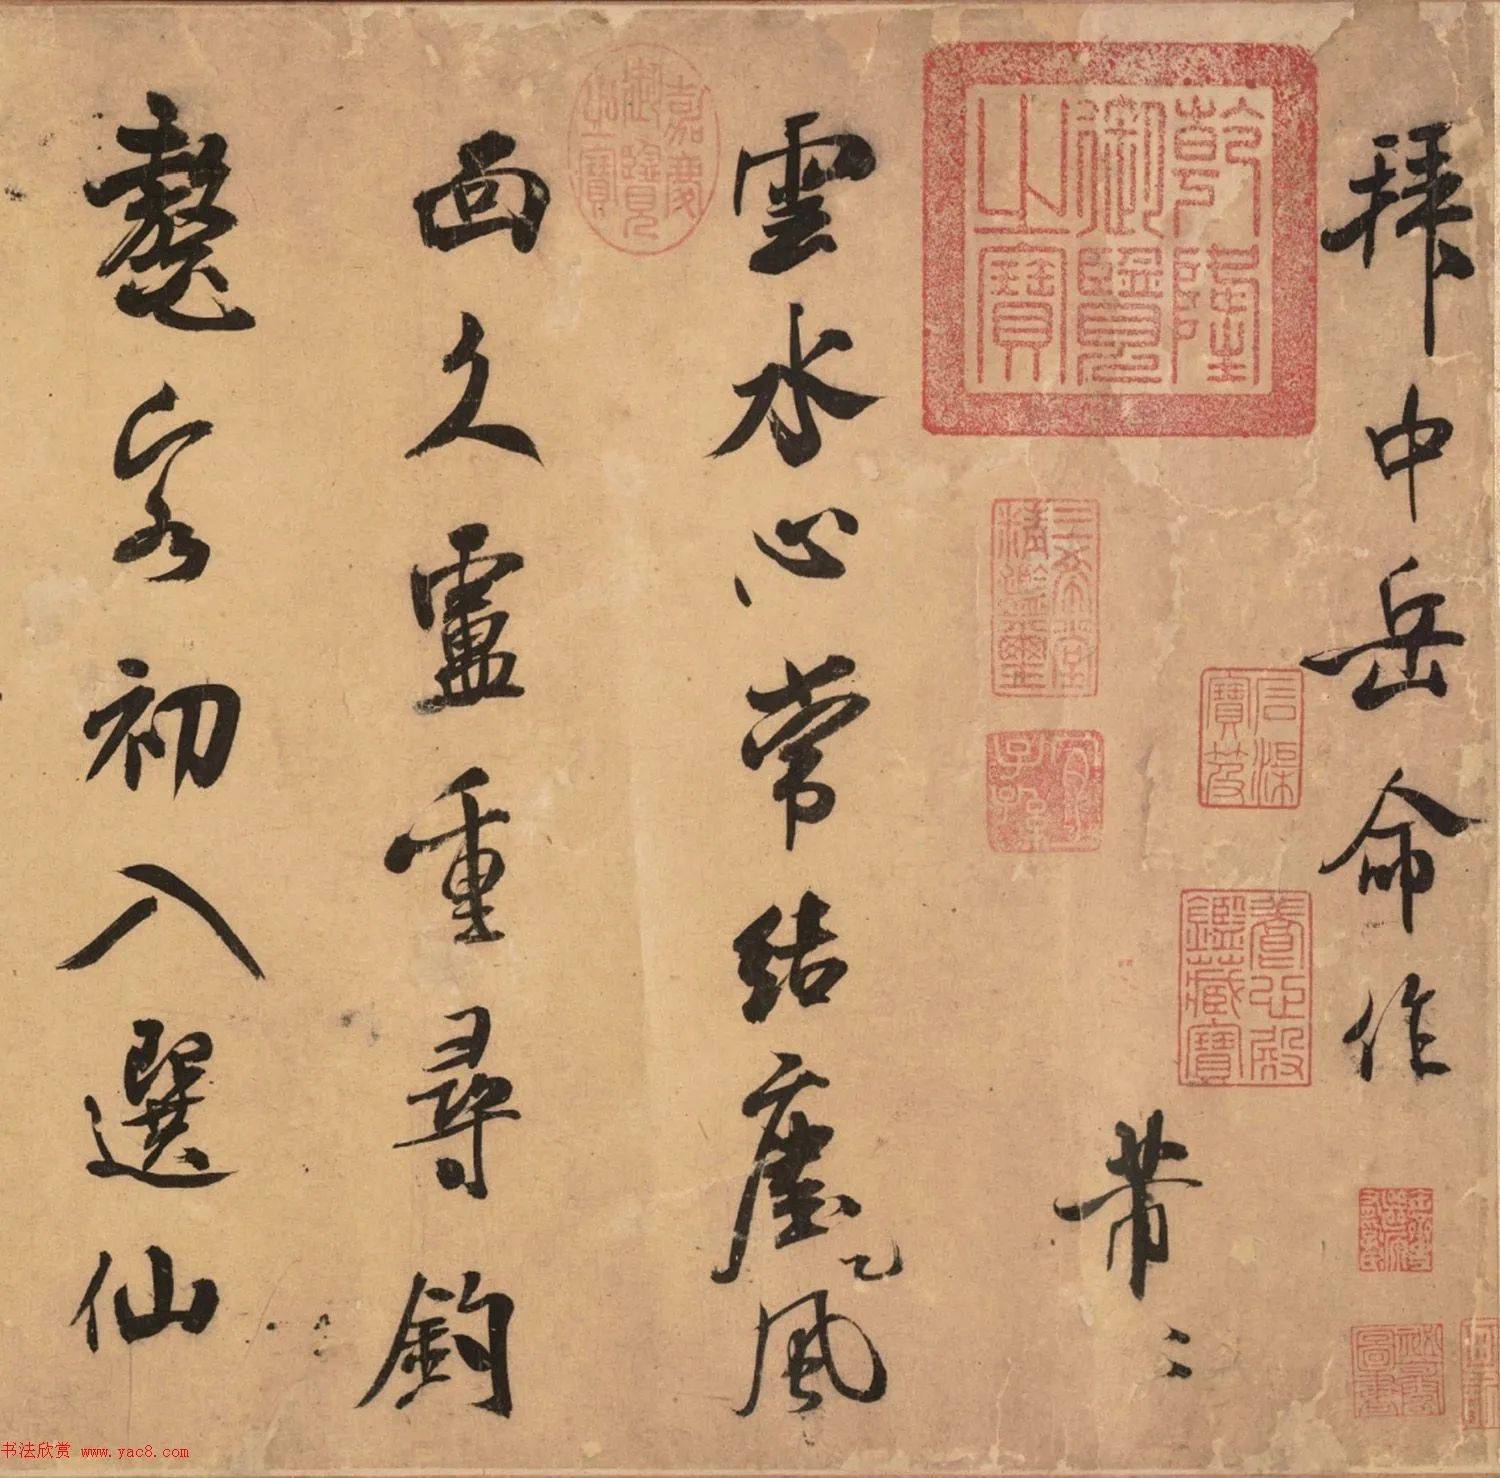 拜中岳命作
芾
雲水心常結塵風
面久盧重尋釣
鼇客初入選仙
乾隆御覽之寶
嘉慶御覽之寶
三希堂精鑑璽
宜子孫
石渠寶笈
養心殿鑑藏寶
书法欣赏 www.yac8.com